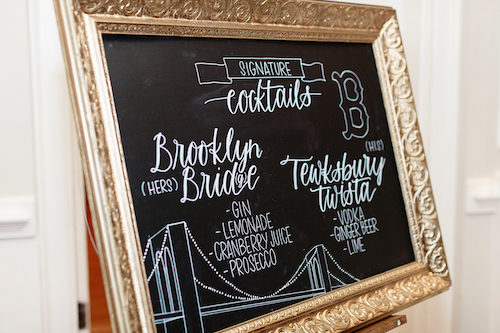 SIGNATURE
cocktails
B
Brooklyn
(HERS) Bridge
GIN
-LEMONADE
-CRANBERRY JUICE
-PROSECCO
(HIS)
Tewksbury
twista
-VODKA
-GINGER BEER
-LIME